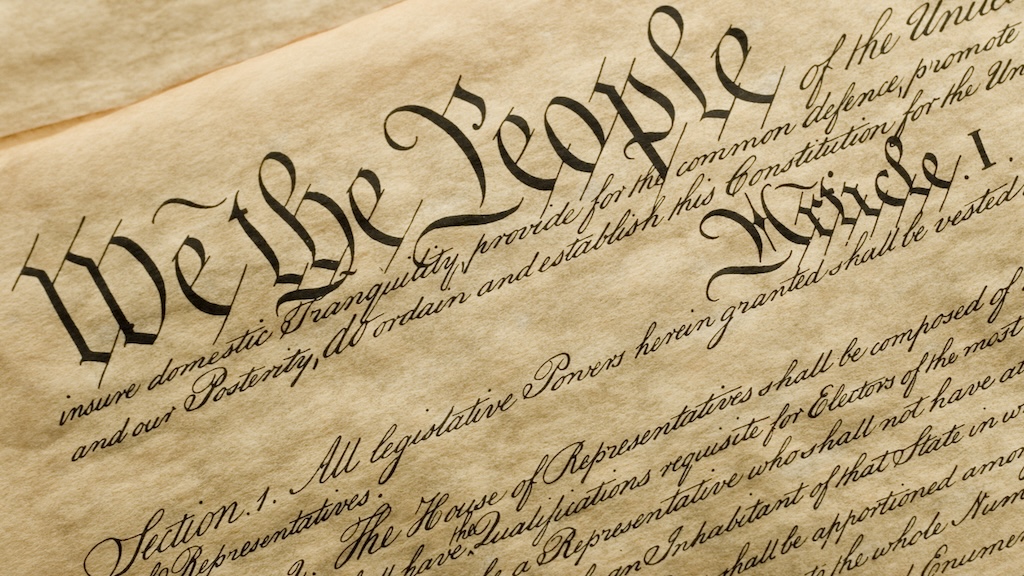 We the People of the Unite
insure domestic Tranquility, provide for the common defence, promote
and our Posterity, do ordain and establish this Constitution for the Un
Article. I.
Section. 1. All legislative Powers herein granted shall be vested
Representatives.
The House of Representatives shall be composed of
have the Qualifications requisite for Electors of the most
a Representative who shall not have at
an Inhabitant of that State in w
shall be apportioned amon
the whole Num
Enumer